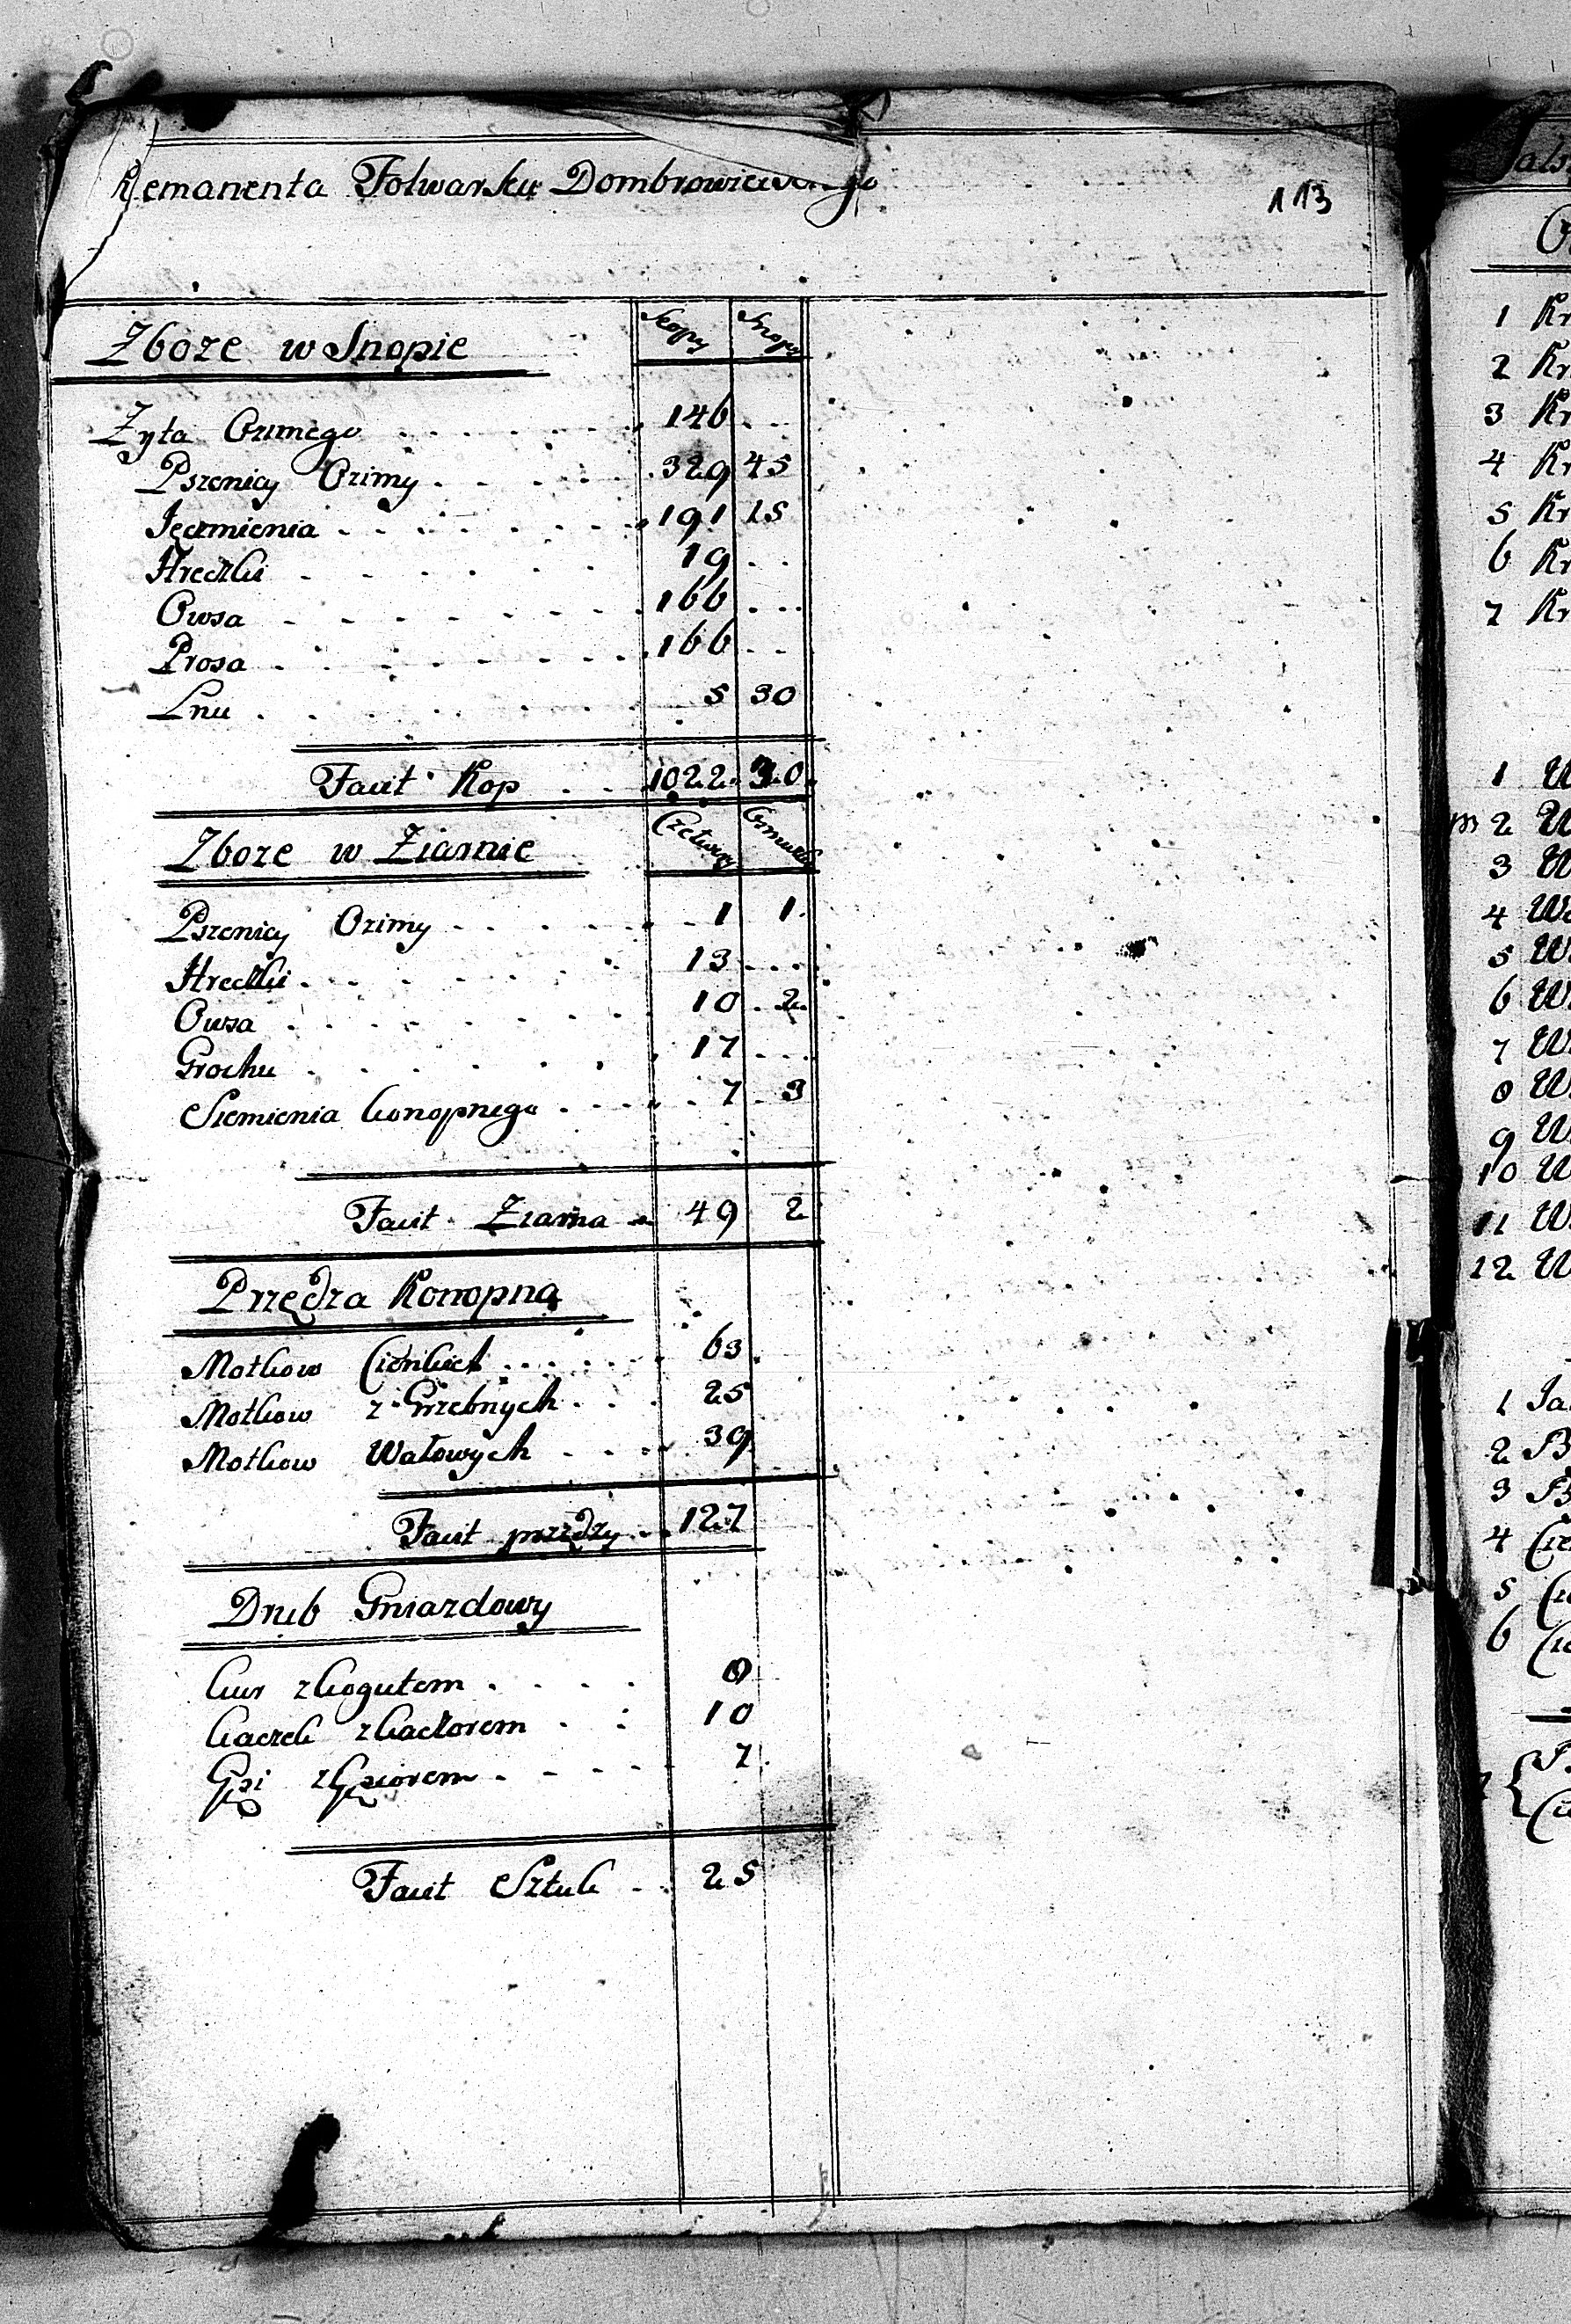 Remanenta Folwarku Dombrowieckiego
113
Zboze w Snopie Kopy Snopy
Zyta Ozimego 146
Pszenicy Ozimy 329 45
Jęczmienia 191 15
Hreczki 19
Owsa 166
Prosa 166
Lnu 5 30
Facit Kop 1022 30
Zboze w Ziarnie Czetwery
Pszenicy Ozimy 1 1
Hreczki 13
Owsa 10 2
Grochu 17
Siemienia konopnego 7 3
Facit Ziarna 49 2
Przędza Konopna
Motkow Cienkich 63
Motkow z Grzebnych 25
Motkow Wałowych 39
Facit przędzy 127
Drub Gniazdowy
kur z kogutem 8
kaczek z kaczorem 10
Gęsi z Gęsiorem 7
Facit Sztuk 25
1 Kr
2 Kr
3 Kr
4 Kr
5 Kr
6 Kr
7 Kr
1 W
2 W
3 W
4 Wo
5 W
6 W
7 W
8 W
9 W
10 W
11 W
12 W
1 Ja
2 B
3 B
4 Cie
5 Cie
6 Cie